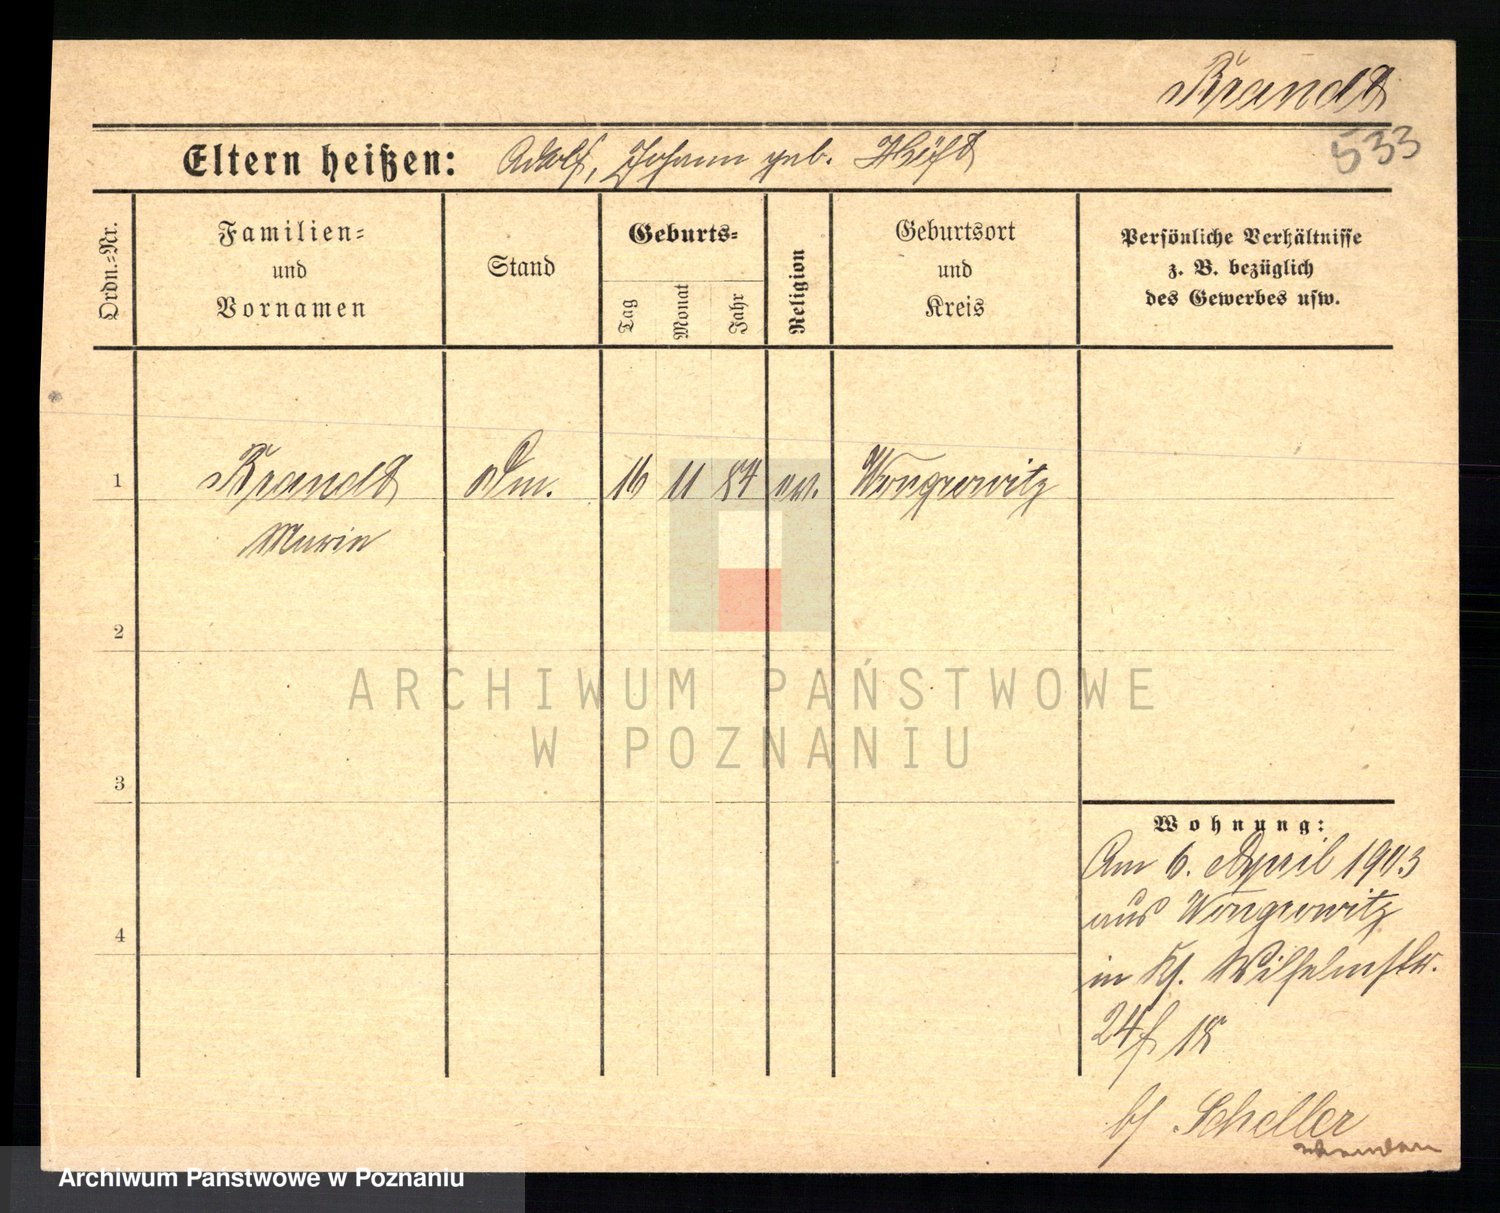 Brandt
533
Eltern heißen: Adolf, Johann geb. Heift
Ordn.-Nr.
Familien-
und
Vornamen
Stand
Geburts-
Tag
Monat
Jahr
Religion
Geburtsort
und
Kreis
Persönliche Verhältnisse
z. B. bezüglich
des Gewerbes usw.
1
Brandt
Marie
16 11 84 ev. Wongrowitz
2
3
4
Wohnung:
Am 6. April 1903
aus Wongrowitz
in Wilhelmstr.
24
Scheller
ARCHIWUM PAŃSTWOWE
W POZNANIU
Archiwum Państwowe w Poznaniu